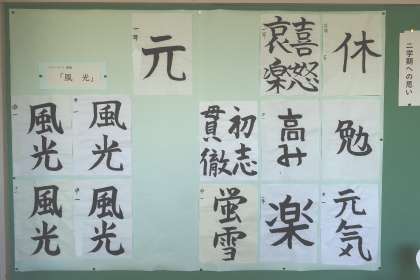 二学期への思い
休
勉
元気
喜怒
哀楽
高み
楽
初志
貫徹
蛍雪
元
「風 光」
風光
風光
風光
風光